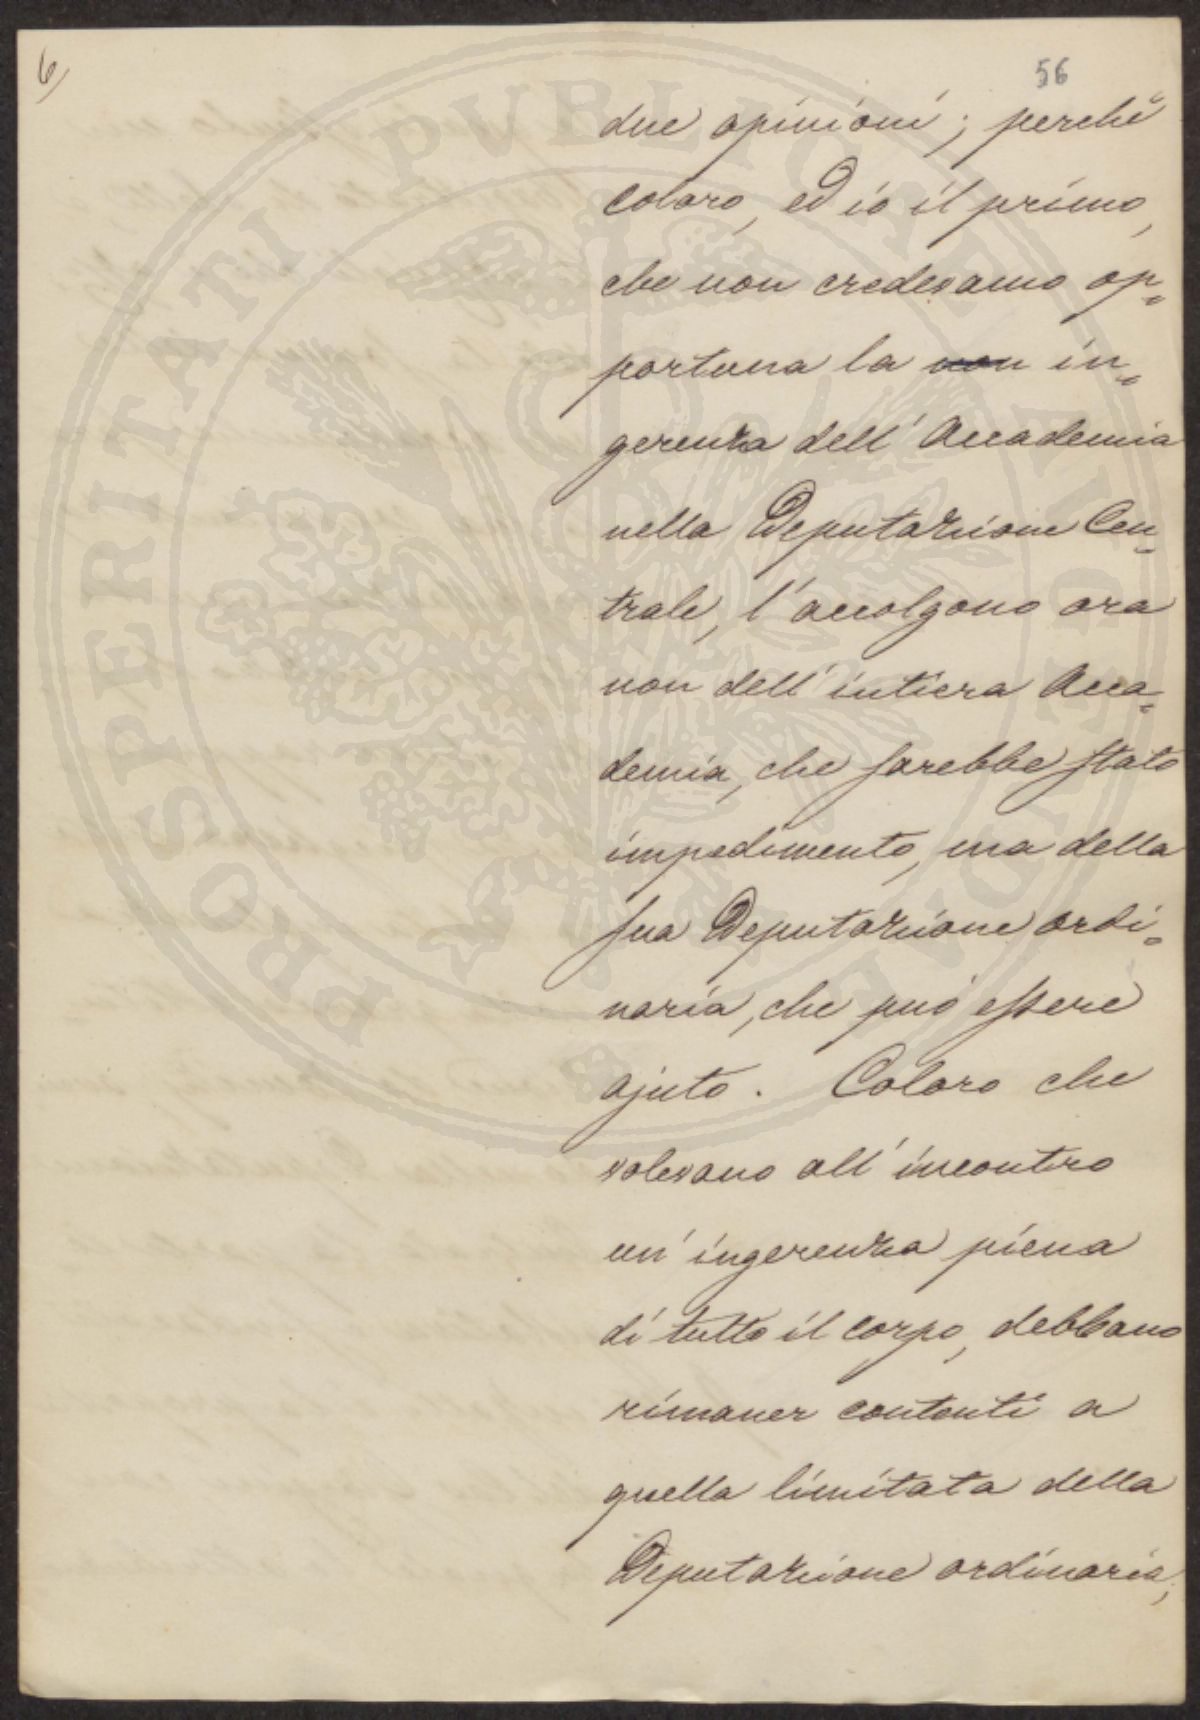 6)
56
due opinioni; perchè
coloro, ed io il primo,
che non credevamo op=
portuna la non in=
gerenza dell'Accademia
nella Deputazione Cen=
trale, l'accolgono ora
non dell'intiera Acca=
demia, che sarebbe stato
impedimento, ma della
sua Deputazione ordi=
naria, che può essere
ajuto. Coloro che
volevano all'incontro
un'ingerenza piena
di tutto il corpo, debbano
rimaner contenti a
quella limitata della
Deputazione ordinaria;
PROSPERITATI PVBLICAE AVGENDAE